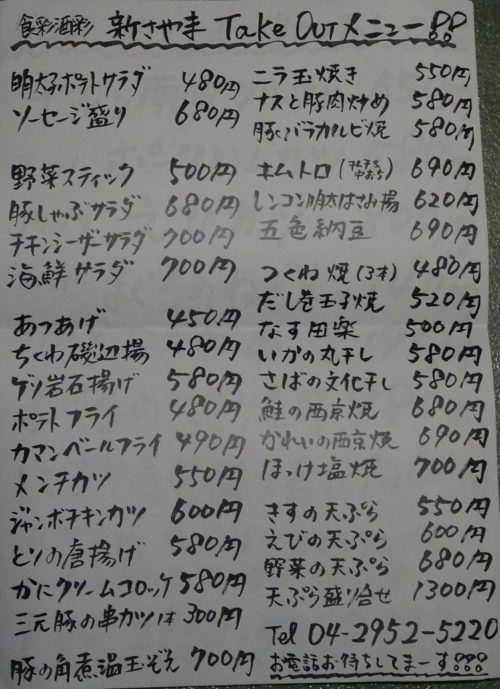 食彩酒彩 新さやま Take Out メニュー!!
明太子ポテトサラダ 480円
ソーセージ盛り 680円
野菜スティック 500円
豚しゃぶサラダ 680円
チキンシーザーサラダ 700円
海鮮サラダ 700円
あつあげ 450円
ちくわ磯辺揚 480円
ゲソ岩石揚げ 580円
ポテトフライ 480円
カマンベールフライ 490円
メンチカツ 550円
ジャンボチキンカツ 600円
とりの唐揚げ 580円
かにクリームコロッケ 580円
三元豚の串カツ1本 300円
豚の角煮温玉ぞえ 700円
ニラ玉焼き 550円
ナスと豚肉炒め 580円
豚バラカルビ焼 580円
キムトロ 690円
レンコン明太はさみ揚 620円
五色納豆 690円
つくね焼(3本) 480円
だし巻玉子焼 520円
なす田楽 500円
いかの丸干し 580円
さばの文化干し 580円
鮭の西京焼 680円
かれいの西京焼 690円
ほっけ塩焼 700円
きすの天ぷら 550円
えびの天ぷら 600円
野菜の天ぷら 680円
天ぷら盛り合せ 1300円
Tel 04-2952-5220
お電話お待ちしてまーす!!!